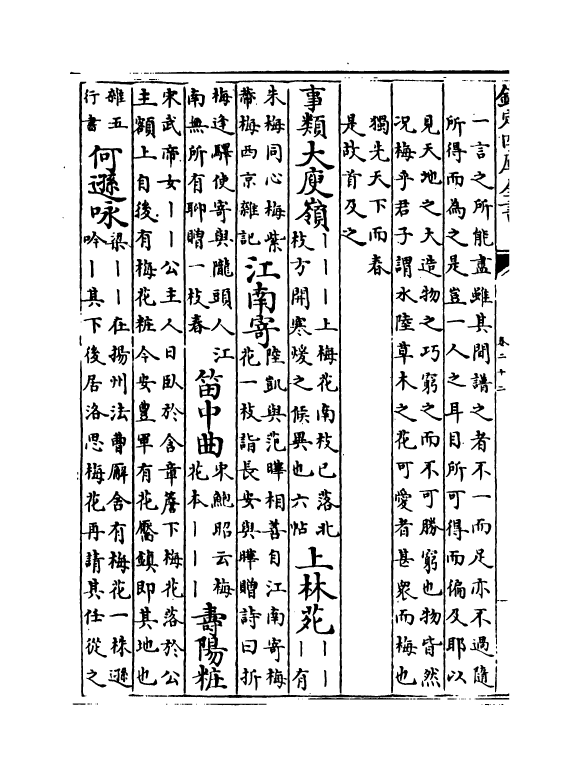 欽定四庫全書
卷二十二
一言之所能盡雖其間譜之者不一而足亦不過隨
所得而為之是豈一人之耳目所可得而徧及耶以
見天地之大造物之巧窮之而不可勝窮也物皆然
況梅乎君子謂水陸草木之花可愛者甚衆而梅也
獨先天下而春
是故首及之
事類大庾嶺
｜｜｜上梅花南枝已落北
枝方開寒煖之候異也六帖
上林苑
｜｜
｜有
朱梅同心梅紫
蔕梅西京雜記
江南寄
陸凱與范曄相善自江南寄梅
花一枝詣長安與曄贈詩曰折
梅逢驛使寄與隴頭人江
南無所有聊贈一枝春
笛中曲
宋鮑昭云梅
花本｜｜｜
壽陽粧
宋武帝女｜｜公主人日臥於含章簷下梅花落於公
主額上自後有梅花粧今安豐軍有花靨鎮即其地也
雜五
行書
何遜咏
梁｜｜在揚州法曹廨舍有梅花一株遜
吟｜其下後居洛思梅花再請其任從之